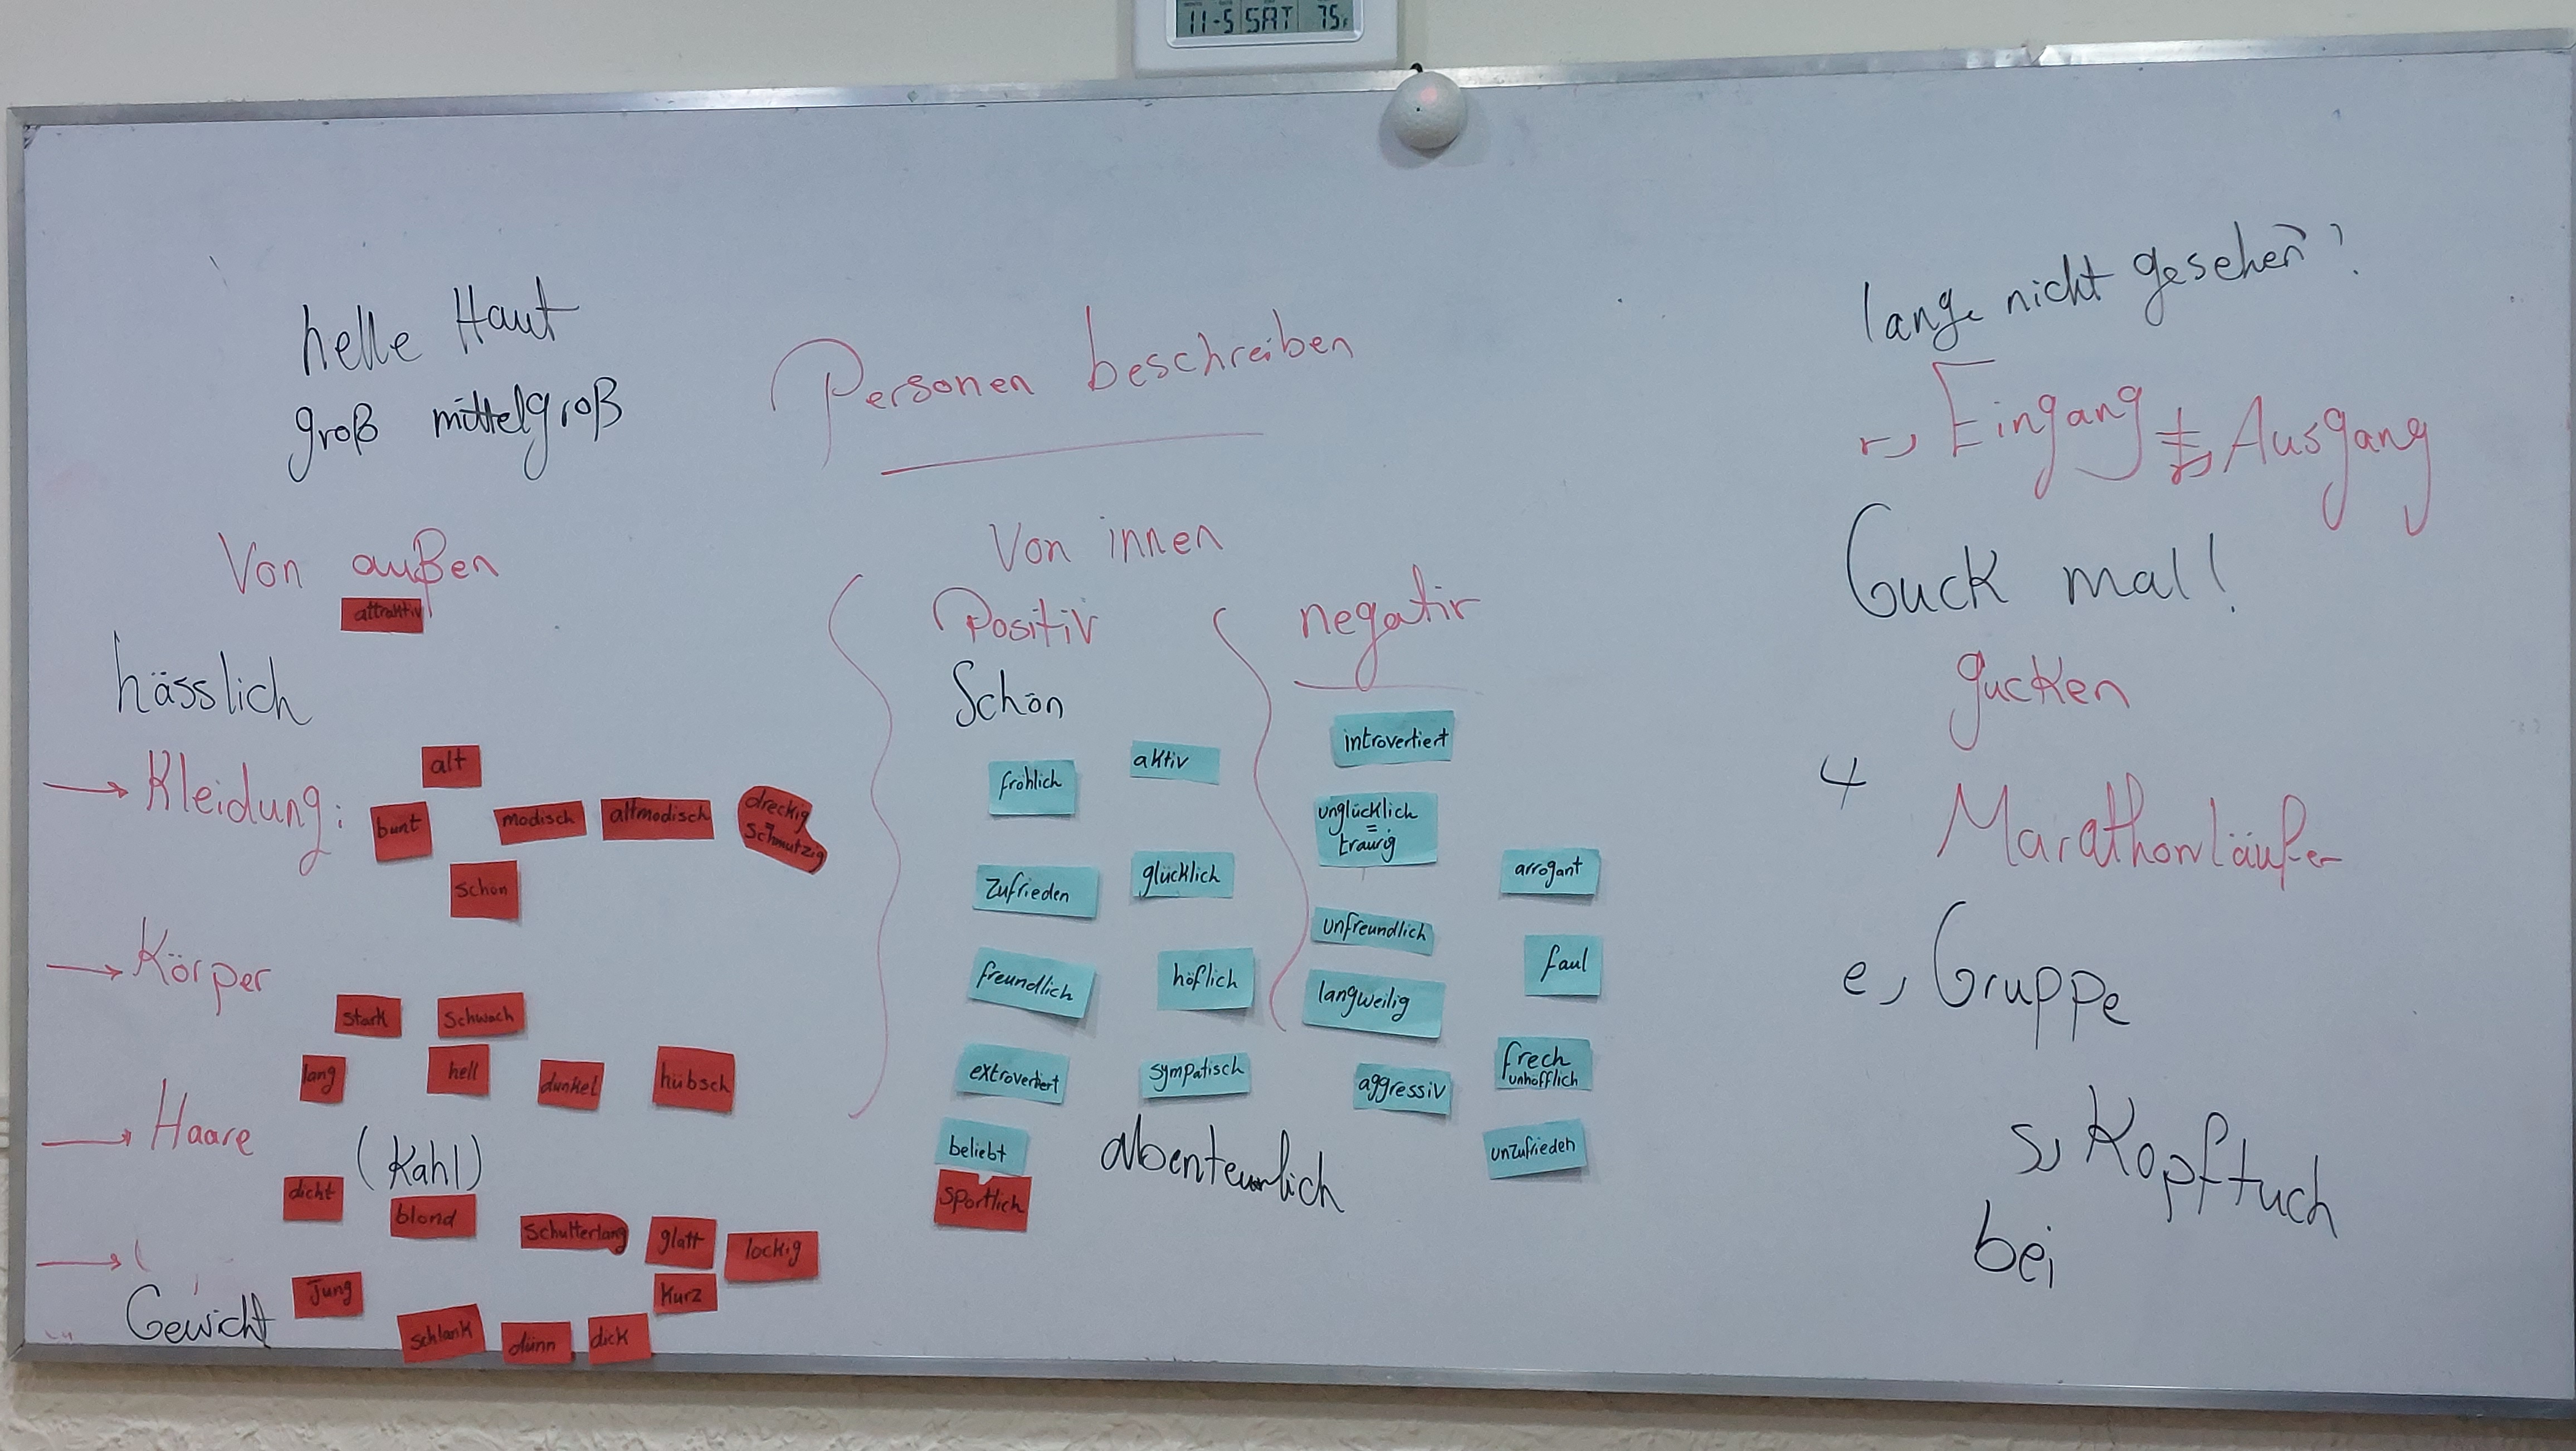 11-5 SAT 75F
helle Haut
groß mittelgroß
Personen beschreiben
Von außen
attraktiv
hässlich
Kleidung:
alt
bunt modisch altmodisch dreckig = schmutzig
schön
Körper
stark schwach
lang hell dunkel hübsch
Haare
(Kahl)
dicht blond Schulterlang glatt lockig
Jung Kurz
Gewicht
schlank dünn dick
Von innen
Positiv
Schön
fröhlich aktiv
zufrieden glücklich
freundlich höflich
extrovertiert sympatisch
beliebt abenteuerlich
sportlich
negativ
introvertiert
unglücklich
=
traurig
arrogant
unfreundlich
faul
langweilig
aggressiv
frech
unhöfflich
unzufrieden
lange nicht gesehen!
r, Eingang ≠ r, Ausgang
Guck mal!
gucken
4
Marathonläufer
e, Gruppe
s, Kopftuch
bei